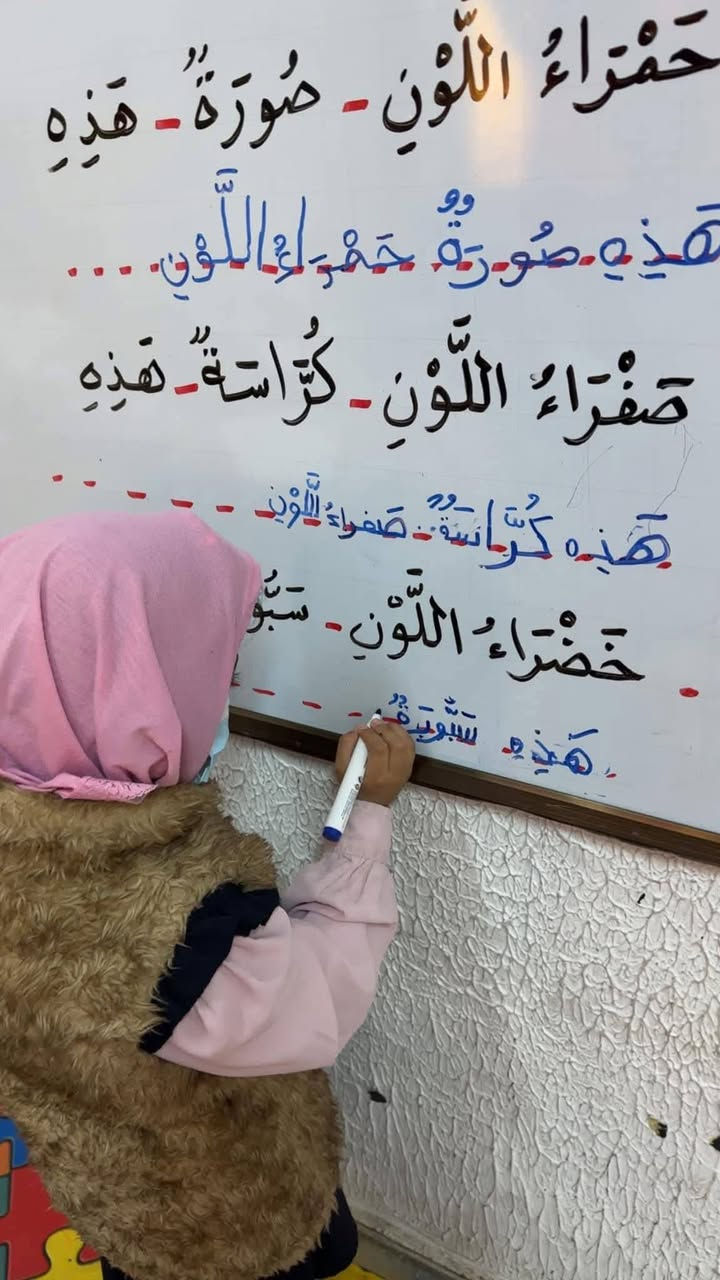 حَمْرَاءُ اللَّوْنِ - صُورَةٌ - هَذِهِ
هَذِهِ صُورَةٌ حَمْرَاءُ اللَّوْنِ....
صَفْرَاءُ اللَّوْنِ - كُرَّاسَةٌ - هَذِهِ
هَذِه كُرَّاسَةٌ صَفراءُ اللَّوْنِ
خَضْرَاءُ اللَّوْنِ - سَبُّو
هَذِهِ سَبُّوبَةٌ